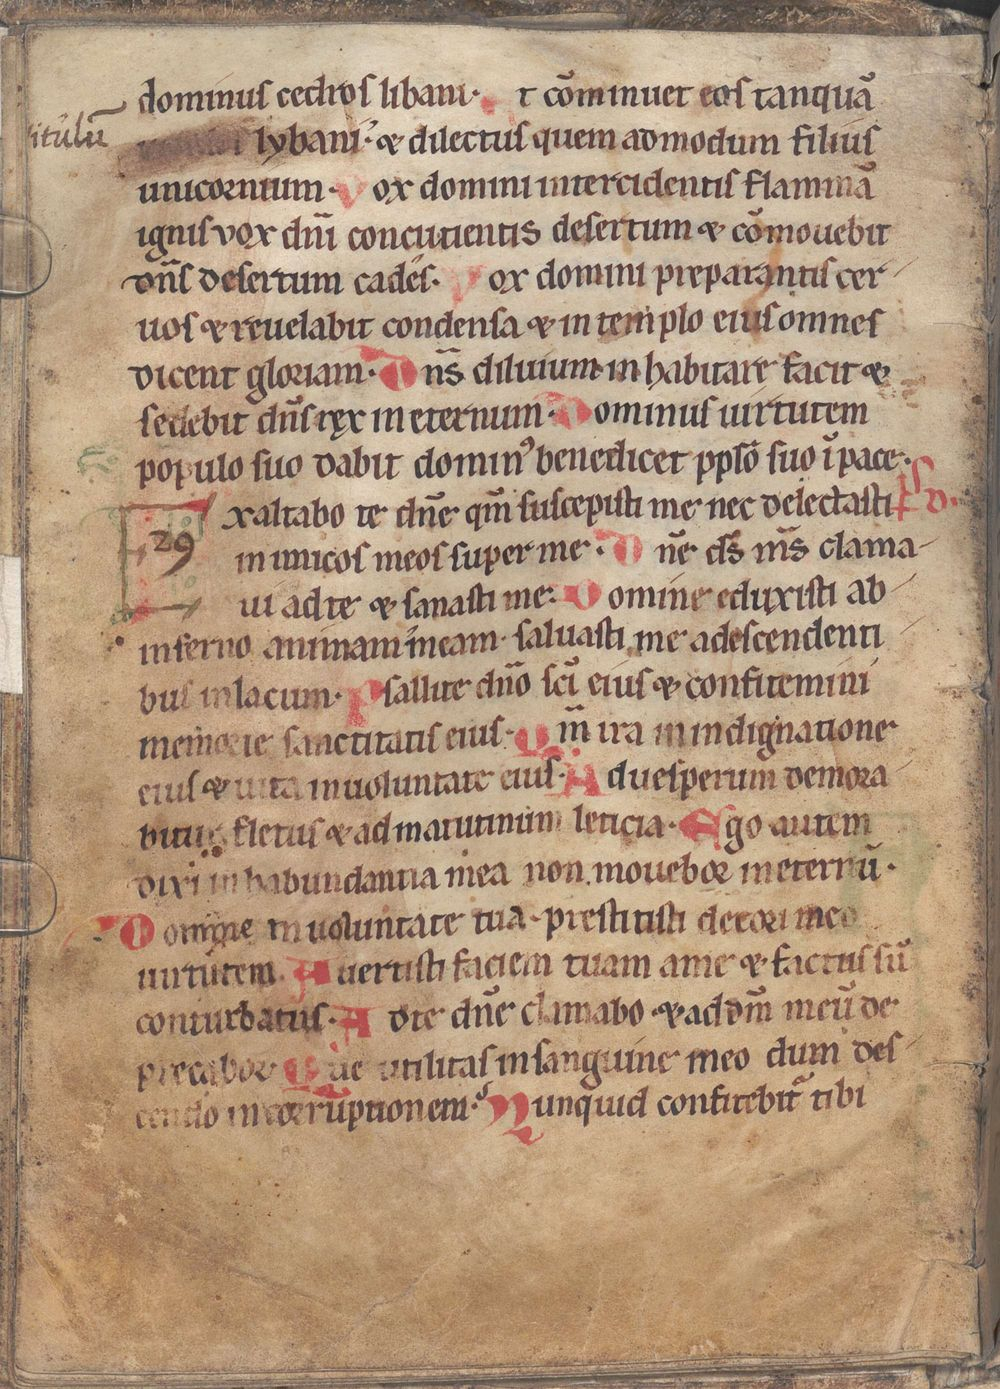 dominus cedros libani· Et cōminuet eos tanquā
vitulū
lybani· & dilectus quem admodum filius
unicornium· Vox domini intercidentis flammā
ignis vox dn̄i concutientis desertum & cōmovebit
dn̄s desertum cades· Vox domini preparantis cer
vos & revelabit condensa & in templo eius omnes
dicent gloriam· Dn̄s diluvium inhabitare facit &
sedebit dn̄s rex in eternum· Dominus uirtutem
populo suo dabit domin' benedicet pplō suo ī pace·
Exaltabo te dn̄e qm̄ suscepisti me nec delectasti ps d·
29
inimicos meos super me· Dn̄e ds̄ ms̄ clama-
ui ad te & sanasti me· Domine eduxisti ab
inferno animam meam· salvasti me a descendenti
bus in lacum· Psallite dn̄o sc̄i eius & confitemini
memorie sanctitatis eius· Qm̄ ira in indignatione
eius & uita in uoluntate eius· Ad uesperum demora
bitur fletus & ad matutinum leticia· Ego autem
dixi in habundantia mea non movebor in eternū·
Domine in uoluntate tua· prestitisti decori meo
uirtutem· Auertisti faciem tuam a me & factus sū
conturbatus· Ad te dn̄e clamabo & ad dm̄ meū de
precabor Que utilitas in sanguine meo dum des-
cendo in corruptionem· Nunquid confitebit' tibi